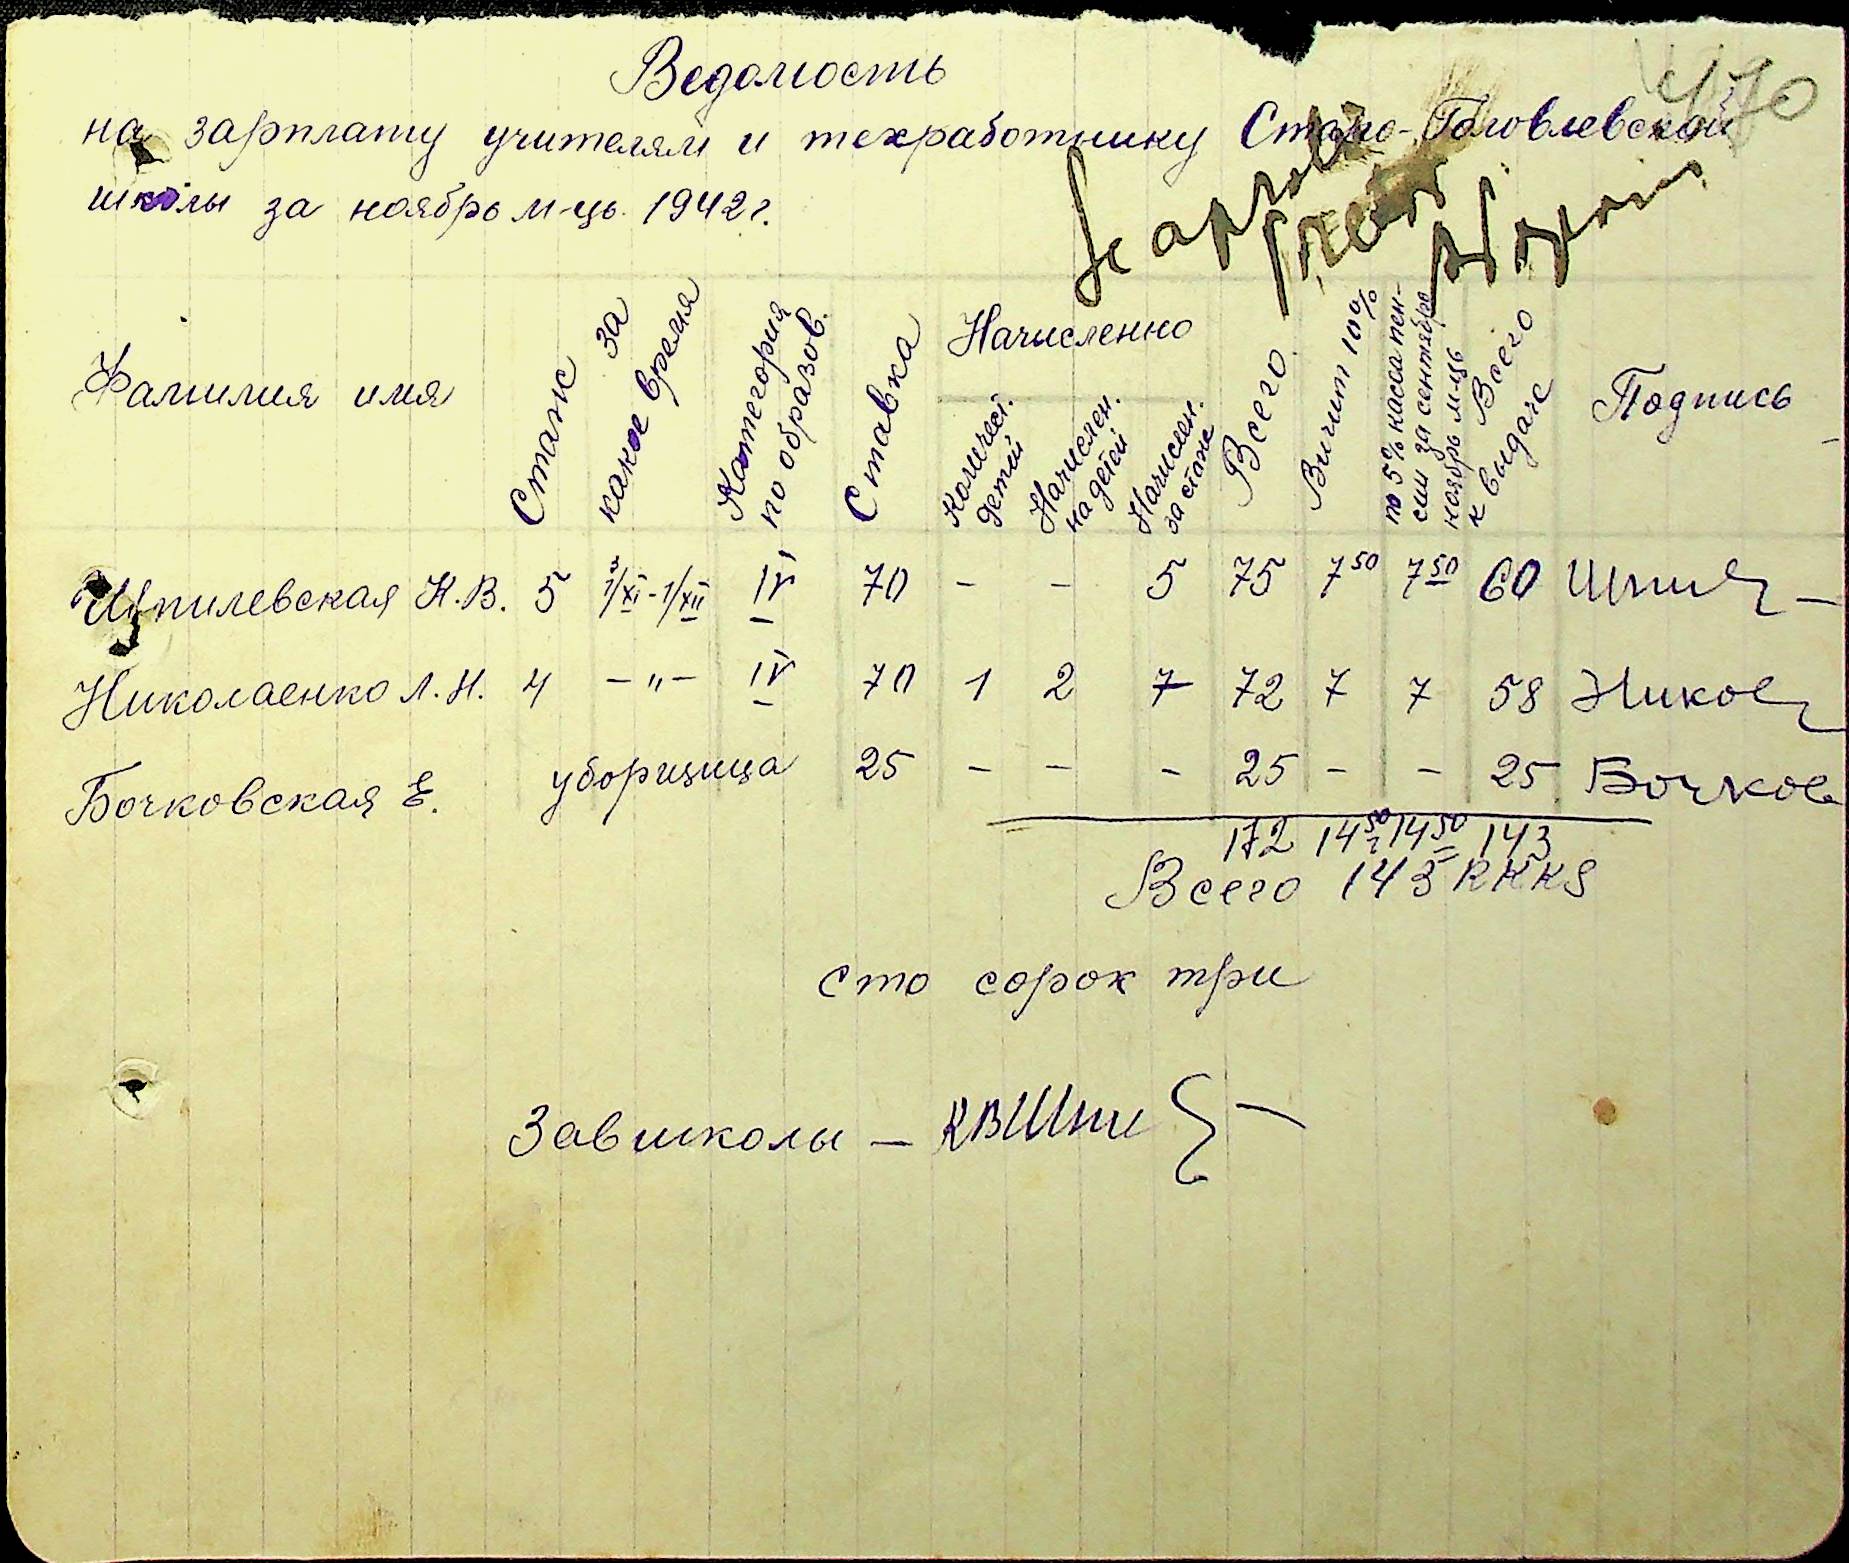 470
Ведомость
на зарплату учителям и техработнику Старо-Головлевской
школы за ноябрь м-ць 1942 г.
Фамилия имя Стаж за какое время Категория по образов. Ставка Начисленно Количест. детей Начислен. на детей Начислен. за стаж Всего Вичит 10% по 5% касса пенсии за сентябрь ноябрь м-ць Всего к выдаче Подпись
Шпилевская К.В. 5 1/XI-1/XII IV 70 - - 5 75 7 50 7 50 60 Шпил
Николаенко Л.Н. 4 -"- IV 70 1 2 7 72 7 7 58 Никол
Бочковская Е. уборщица 25 - - - 25 - - 25 Бочков
172 14 50 14 50 143
Всего 143 RKKS
сто сорок три
Завшколы - КВШпи